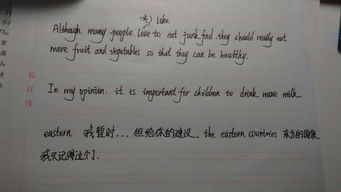 (或) like
Although many people love to eat junk food. they should really eat
more fruit and vegetables so that they can be healthy.
In my opinion. it is important for children to drink more milk
eastern 我暂时... 但给你的建议, the eastern countries 东方的国家
我只记得这个了.